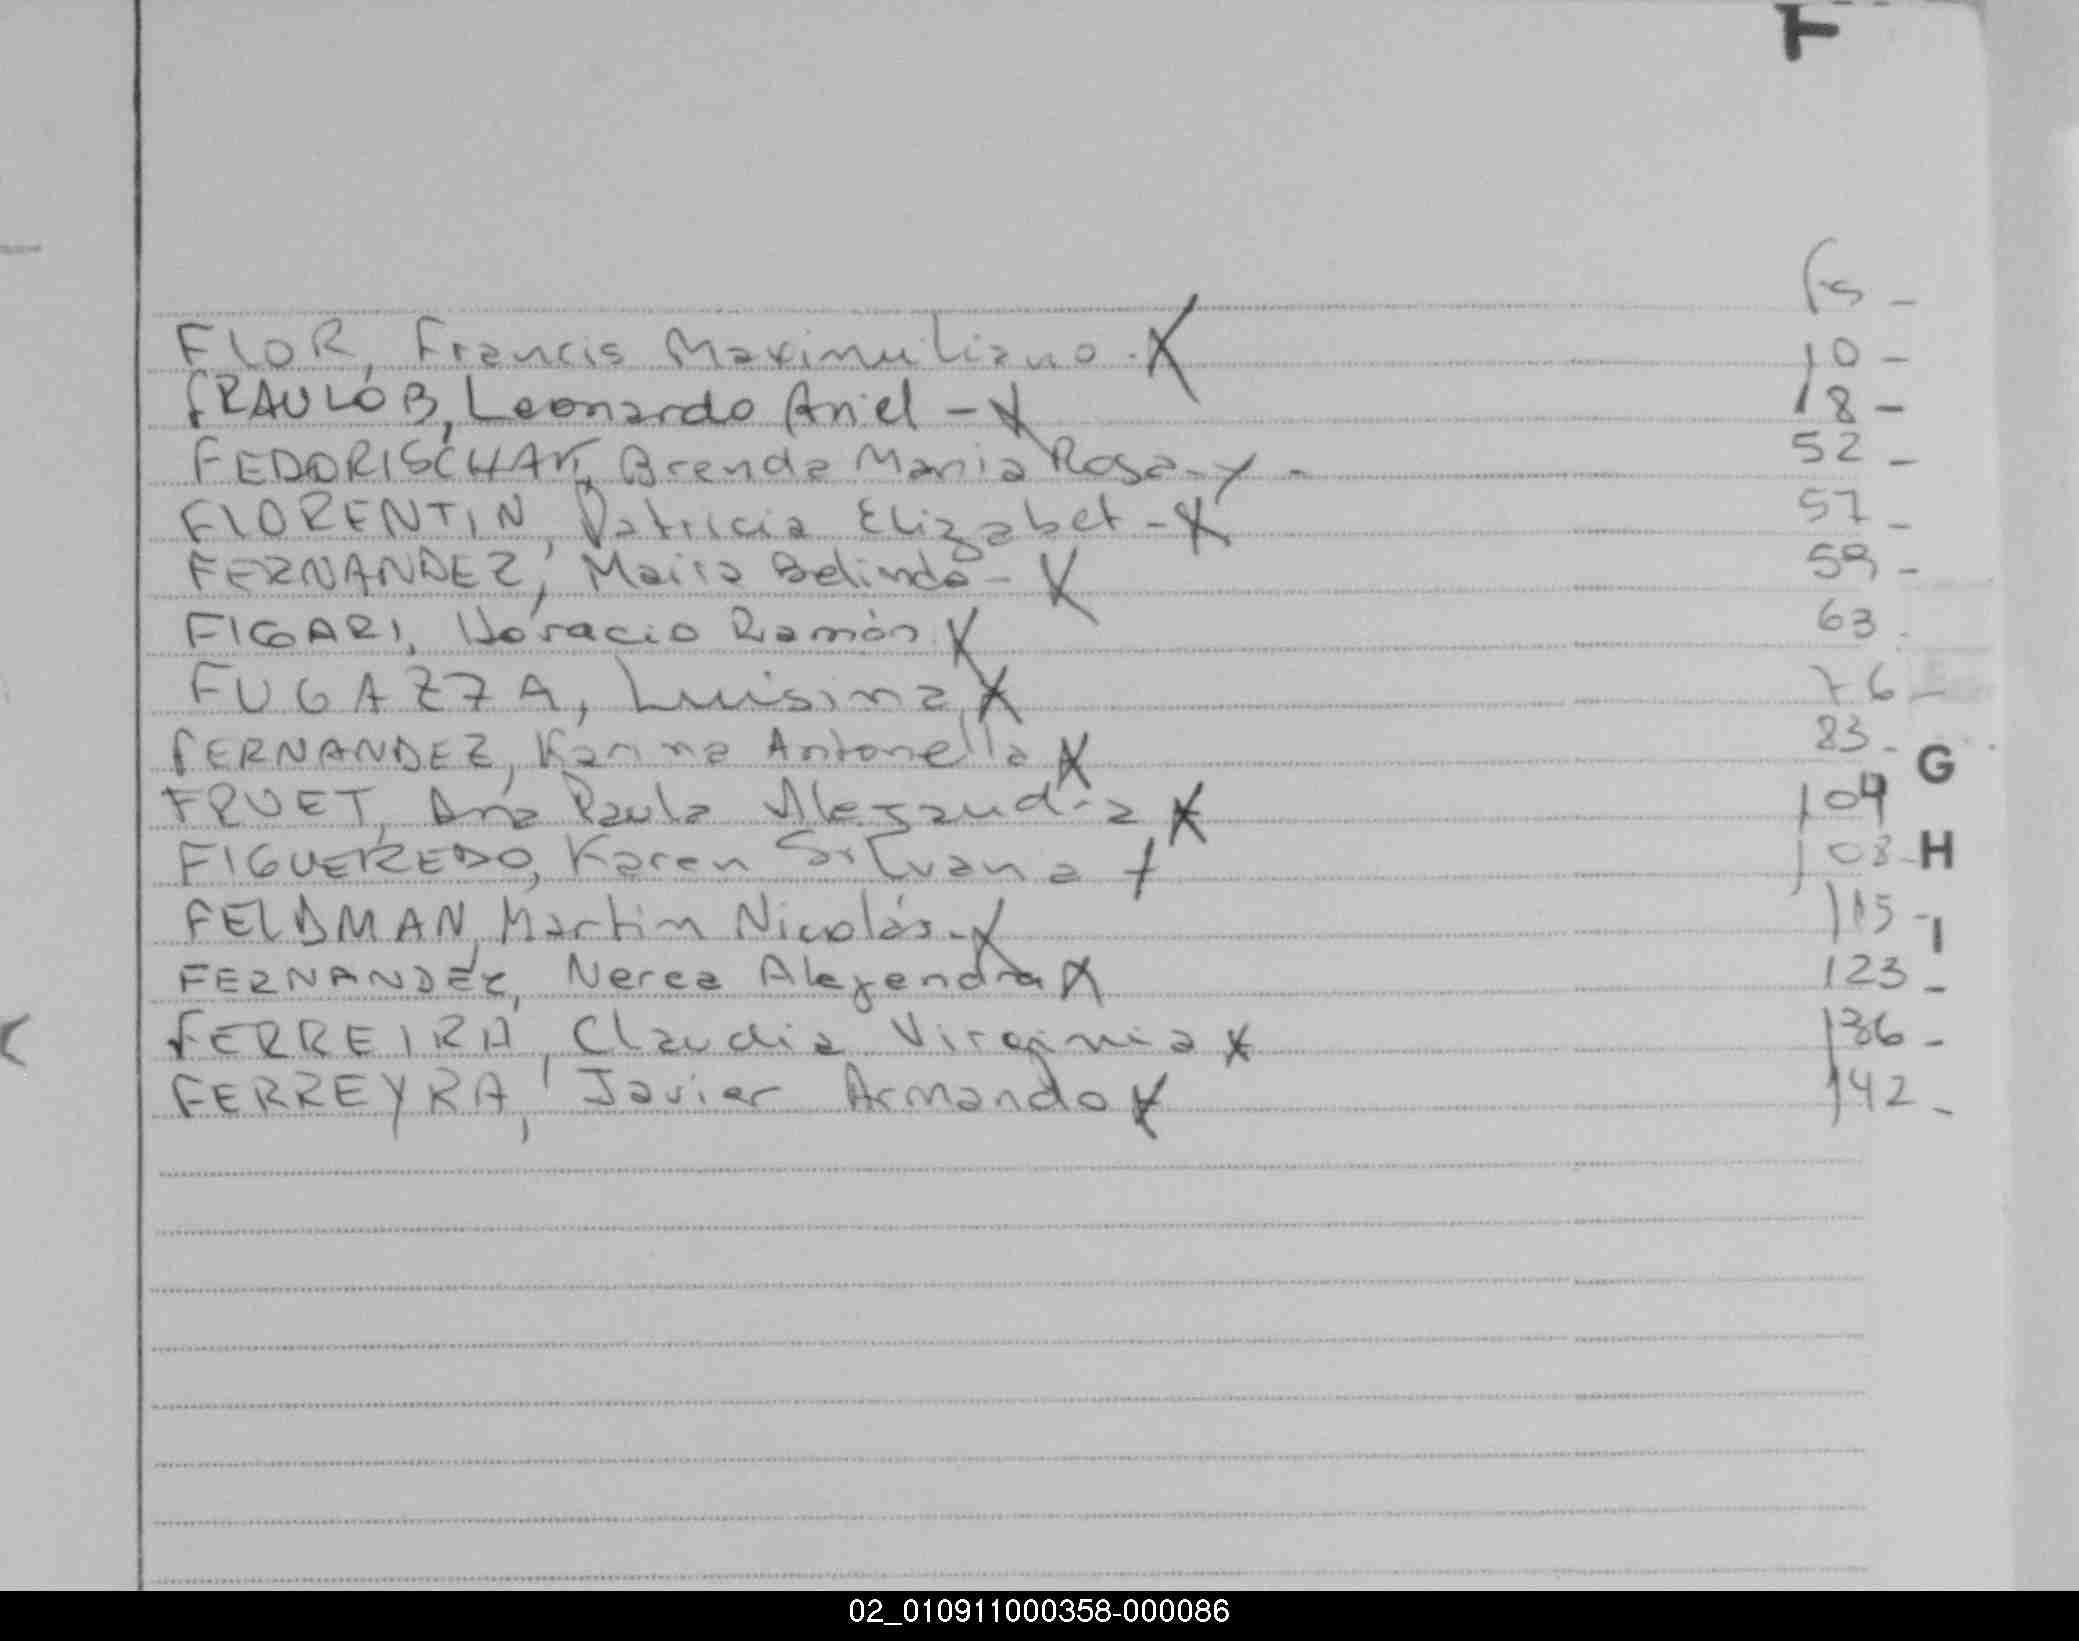 Fs -
FLOR, Francis Maximiliano. X 10 -
FRAULOB, Leonardo Ariel - X 18 -
FEDORISCHAK, Brenda Maria Rosa - X - 52 -
FLORENTIN, Patricia Elizabet - X 57 -
FERNANDEZ, Maira Belinda - X 59 -
FIGARI, Horacio Ramón X 63 -
FUGAZZA, Luisina X 76 -
FERNANDEZ, Karina Antonella X 83 -
G
FRUET, Ana Paula Alejandra X 104
FIGUEREDO, Karen Silvana X 108 -
H
FELDMAN, Martin Nicolás - X 115 -
I
FERNANDEZ, Nerea Alejandra X 123 -
FERREIRA, Claudia Virginia X 136 -
FERREYRA, Javier Armando X 142 -
02_010911000358-000086